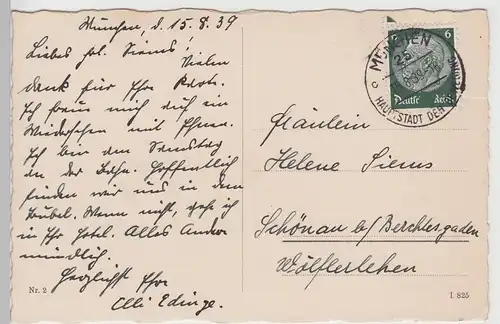 München, d. 15.8.39
Liebes frl. Siems!
Vielen
dank für Ihre Karte.
Ich freue mich auf ein
Wiedersehen mit Ihnen.
Ich bin am Samstag
an der Bahn. Hoffentlich
finden wir uns in dem
Trubel. Wenn nicht, gehe ich
in Ihr Hotel. Alles Andere
mündlich.
Herzlichst Ihre
Elli
Nr. 2
6 6
Deutsches Reich
MÜNCHEN
HAUPTSTADT DER BEWEGUNG
Fräulein
Helene Siems
Schönau b/ Berchtesgaden
Wölflerlehen
I 825